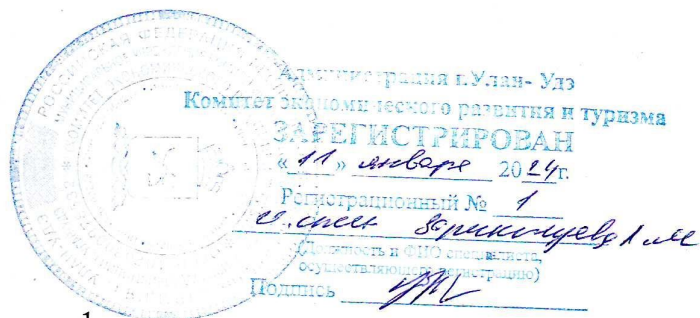 РОССИЙСКАЯ ФЕДЕРАЦИЯ
Администрация г.Улан- Удэ
Комитет экономического развития и туризма
ЗАРЕГИСТРИРОВАН
« 11 » января 2024г.
Регистрационный № 1
(Должность и ФИО специалиста,
осуществляющего регистрацию)
Подпись
1